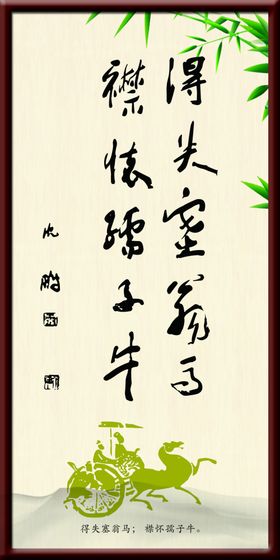 得失塞翁马
襟怀孺子牛
沈鹏
得失塞翁马；襟怀孺子牛。